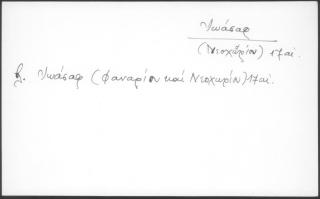 Ἰωάσαφ
(Νεοχωρίου) 17 αἰ.
βλ. Ἰωάσαφ (Φαναρίου καί Νεοχωρίου) 17 αἰ.